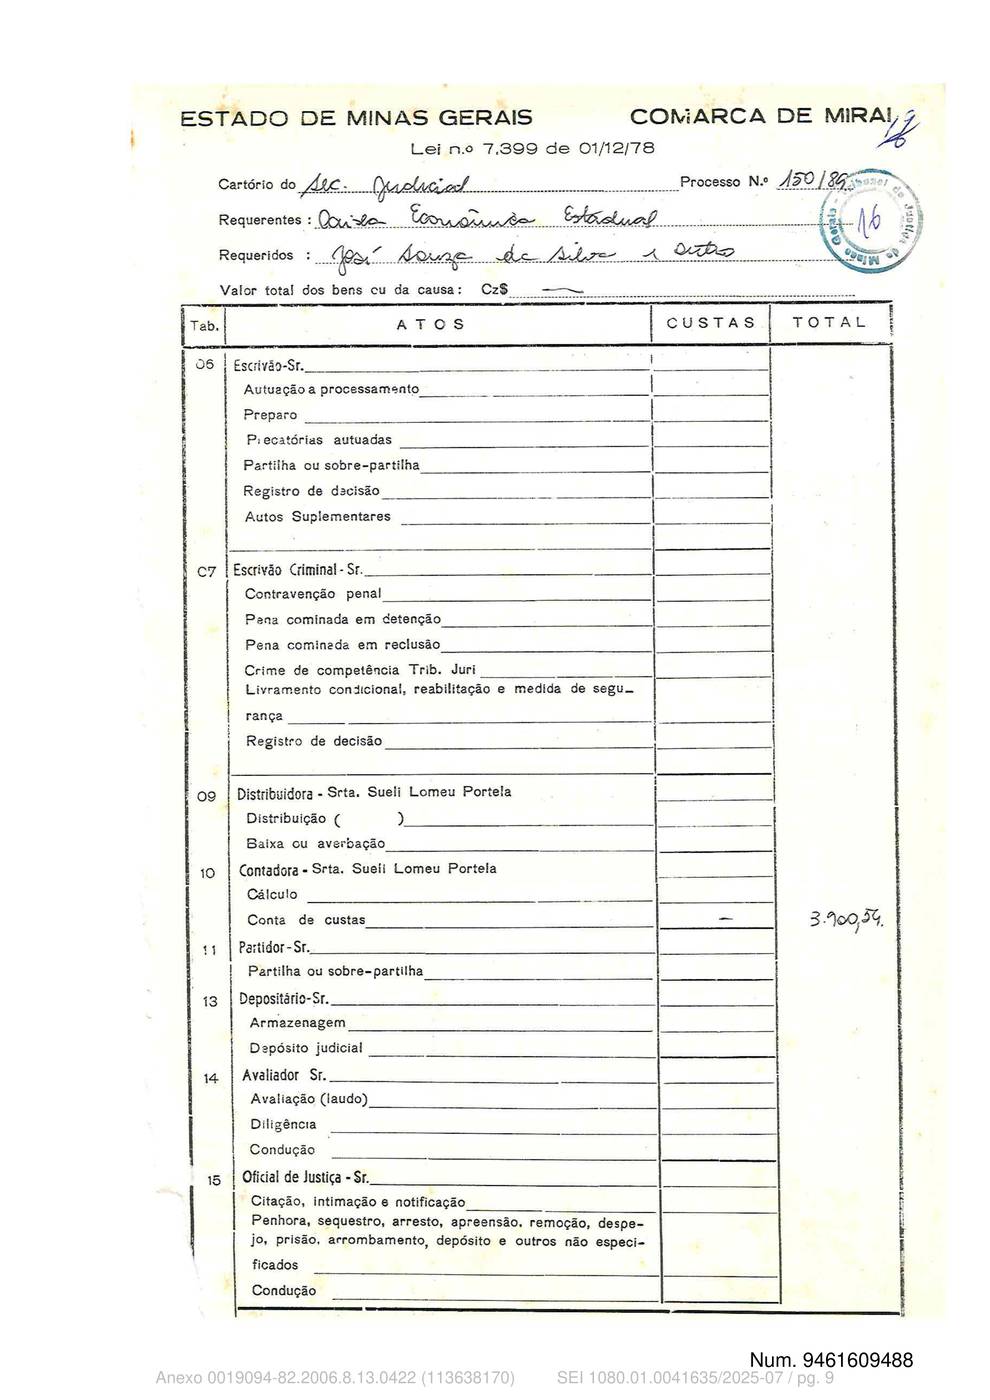 ESTADO DE MINAS GERAIS COMARCA DE MIRAI
Lei n.o 7.399 de 01/12/78
Cartório do Sec. Judicial Processo N.º 150/89
Requerentes : Caixa Econômica Estadual
Requeridos : José Souza da Silva e outro
16
Valor total dos bens ou da causa: Cz$ —
Tab. ATOS CUSTAS TOTAL
06 Escrivão-Sr.
Autuação a processamento
Preparo
Precatórias autuadas
Partilha ou sobre-partilha
Registro de decisão
Autos Suplementares
C7 Escrivão Criminal - Sr.
Contravenção penal
Pena cominada em detenção
Pena cominada em reclusão
Crime de competência Trib. Juri
Livramento condicional, reabilitação e medida de segu-
rança
Registro de decisão
09 Distribuidora - Srta. Sueli Lomeu Portela
Distribuição ( )
Baixa ou averbação
10 Contadora - Srta. Sueli Lomeu Portela
Cálculo
Conta de custas — 3.900,54.
11 Partidor-Sr.
Partilha ou sobre-partilha
13 Depositário-Sr.
Armazenagem
Depósito judicial
14 Avaliador Sr.
Avaliação (laudo)
Diligência
Condução
15 Oficial de Justiça - Sr.
Citação, intimação e notificação
Penhora, sequestro, arresto, apreensão, remoção, despe-
jo, prisão, arrombamento, depósito e outros não especi-
ficados
Condução
Num. 9461609488
Anexo 0019094-82.2006.8.13.0422 (113638170) SEI 1080.01.0041635/2025-07 / pg. 9